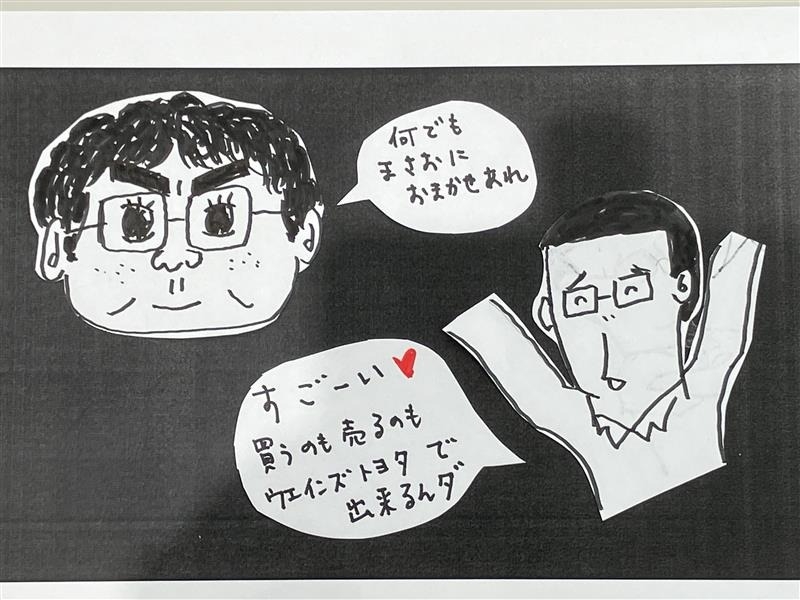 何でも
まさおに
おまかせあれ
すごーい♥
買うのも売るのも
ウエインズトヨタで
出来るんダ